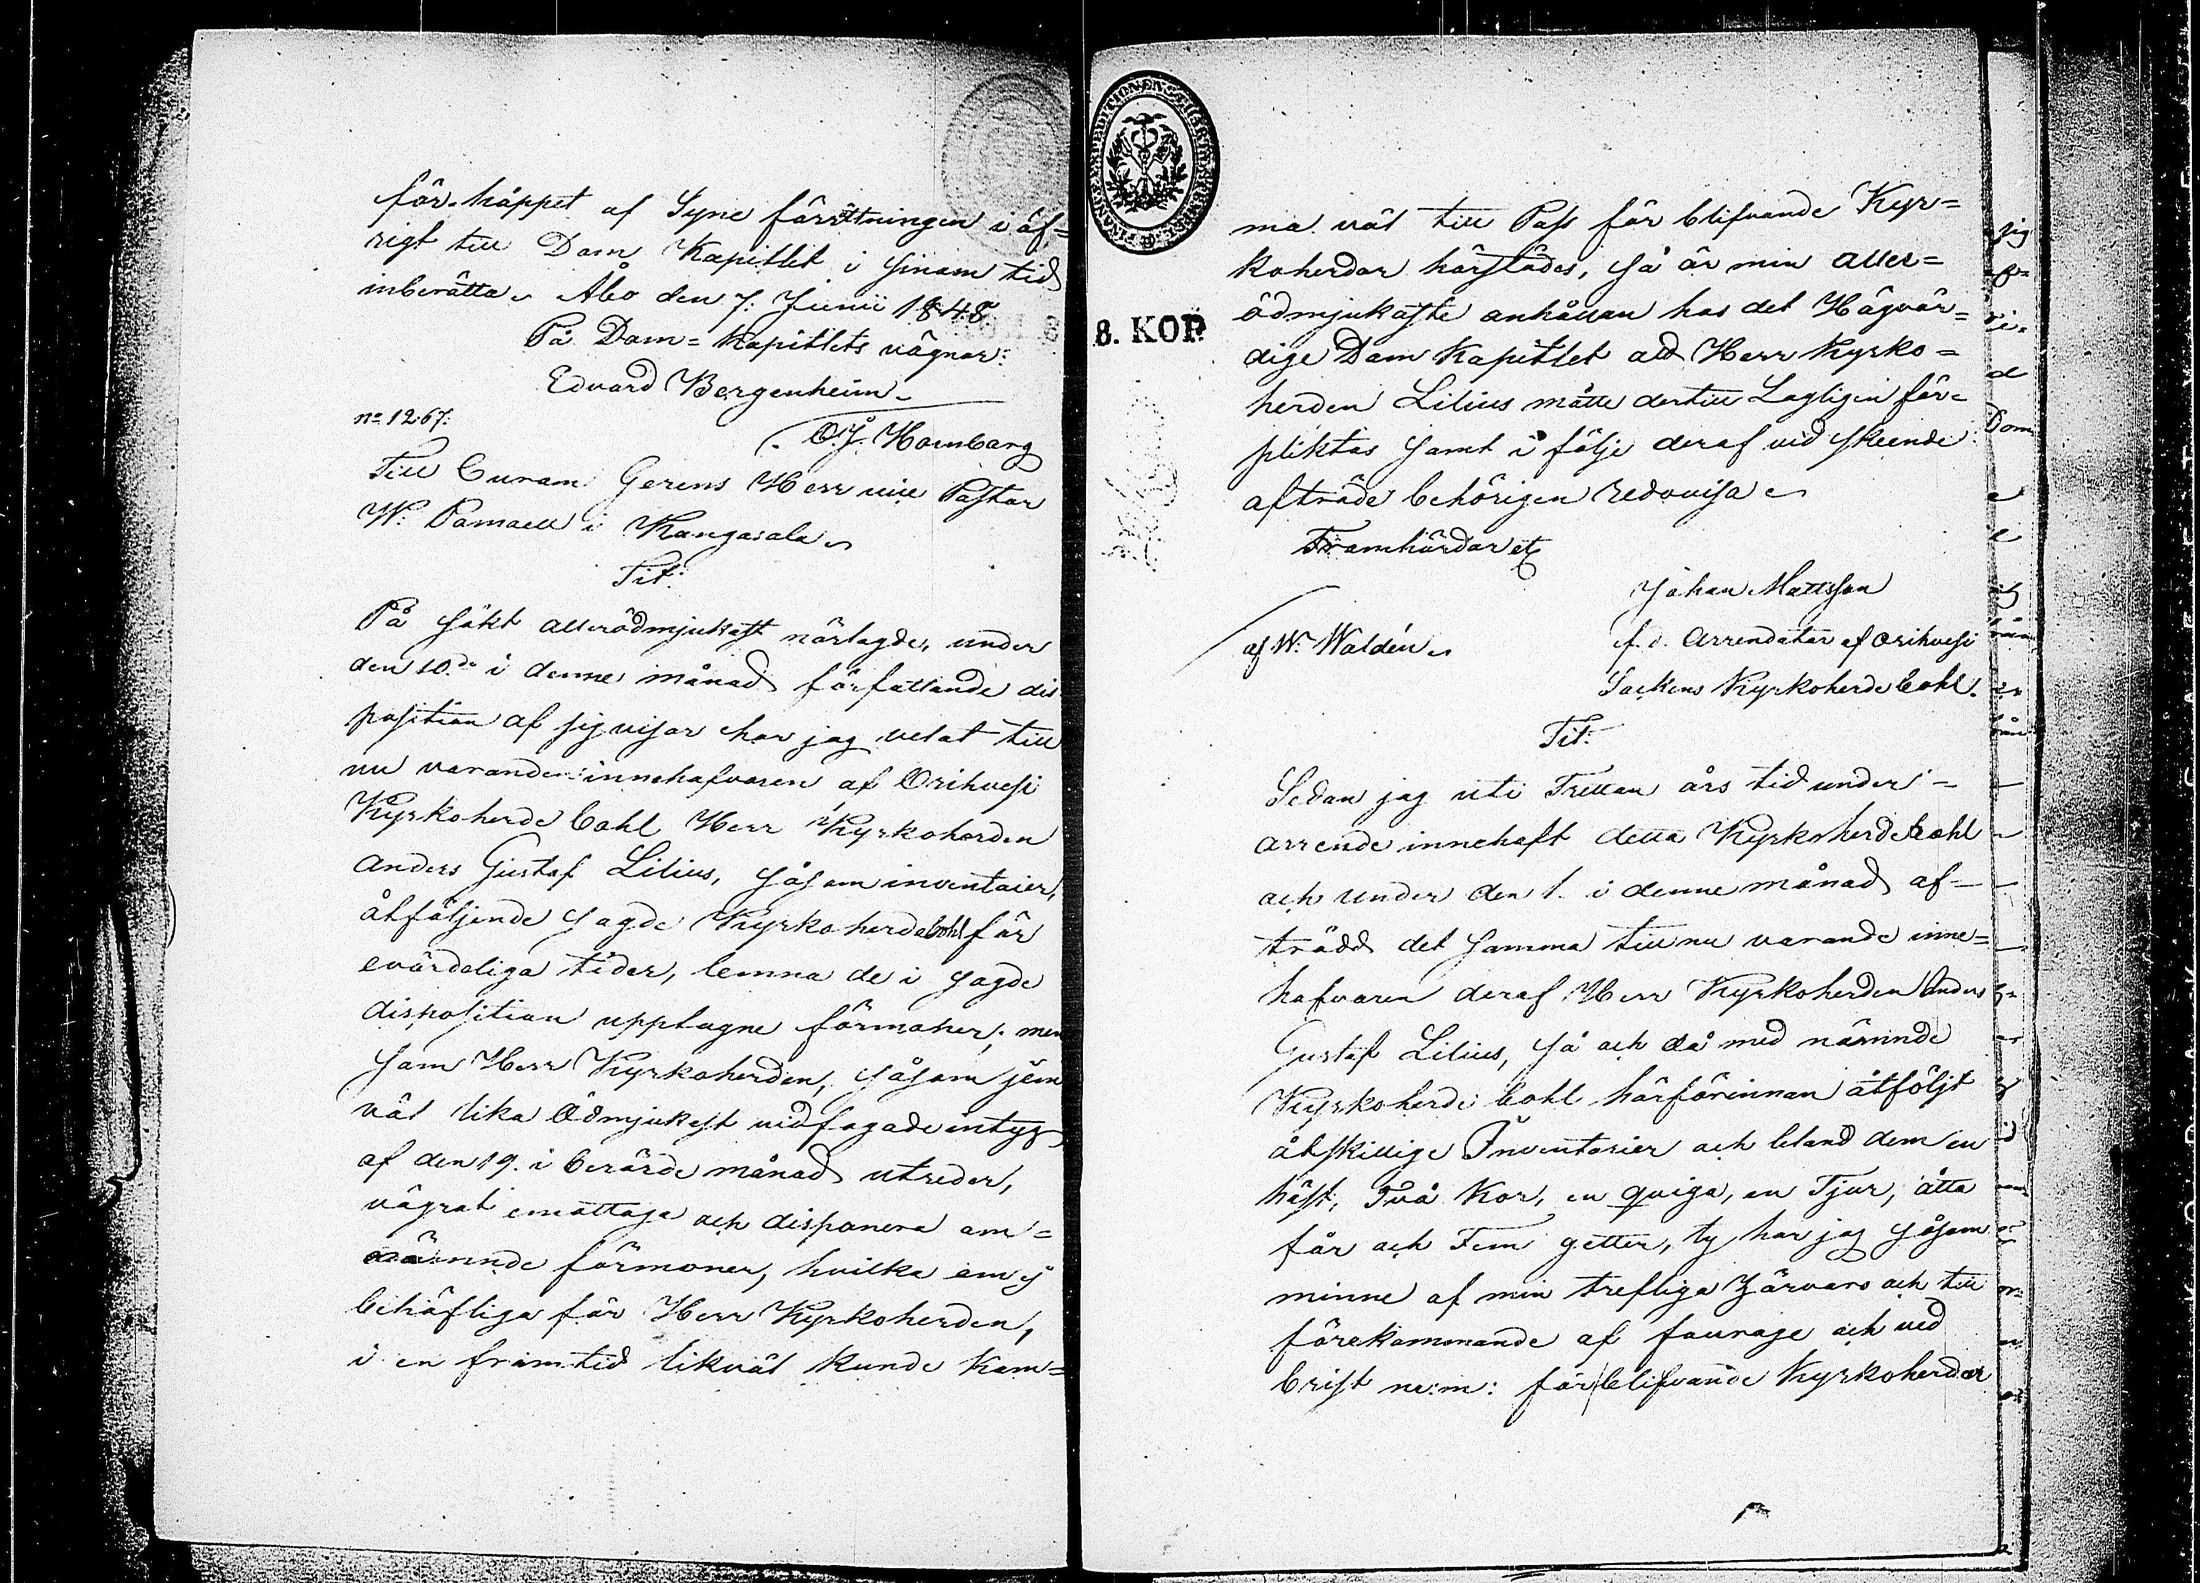 förloppet af Syne förrättningen i öf=
rigt till Dom Kapitlet i sinom tid
inberätta. Åbo den 7. Junii 1848
På Dom=Kapitlets vägnar:
Edvard Bergenheim
no 1267.
O. J. Hornborg
Till Curam Gerens Herr vice Pastor
W. Pomaell i Kangasala
Tit:
På sökt allerödmjukast närlagde, under
den 10de i denne månad författande dis
position af sig visar har jag velat till
nu varande innehafvaren af Orihvesi
Kyrkoherde bohl Herr Kyrkoherden
Anders Gustaf Lilius, såsom inventarier,
åtföljende sagde Kyrkoherdebohl för
evärdeliga tider, lemna de i sagde
disposition upptagne förmoner; men
som Herr Kyrkoherden, såsom jem
väl lika Ödmjukast vidfogade intyg
af den 19. i berörde månad utreder,
vägrat emottaga och disponera om=
nämnde förmoner, hvilka om ej
behöfliga för Herr Kyrkoherden,
i en framtid likväl kunde kom=
8. KOP.
ma väl till Pass för blifvande Kyr=
koherdar härstädes, så är min aller=
ödmjukaste anhållan hos det Högvör=
dige Dom Kapitlet att Herr Kyrko=
herden Lilius måtte dertill Lagligen för=
pliktas samt i följe deraf vid skeende
afträde behörigen redovisa
Framhärdar etc
Johan Mattsson
af W. Waldén
f. d. Arrendator af Orihvesi
Sockens Kyrkoherde bohl.
Tit:
Sedan jag uti Tretton års tid under=
arrende innehaft detta Kyrkoherdebohl
och under den 1. i denne månad af=
trädd det samma till nu varande inne=
hafvaren deraf Herr Kyrkoherden Anders
Gustaf Lilius, så och då med nämnde
Kyrkoherde bohl härförinnan åtföljt
åtskillige Inventarier och bland dem en
häst, Två Kor, en qviga, en Tjur, åtta
får och Fem getter, ty har jag såsom
minne af min trefliga härvaro och till
förekommande af fourage och ved
brist m:m: för blifvande Kyrkoherdar